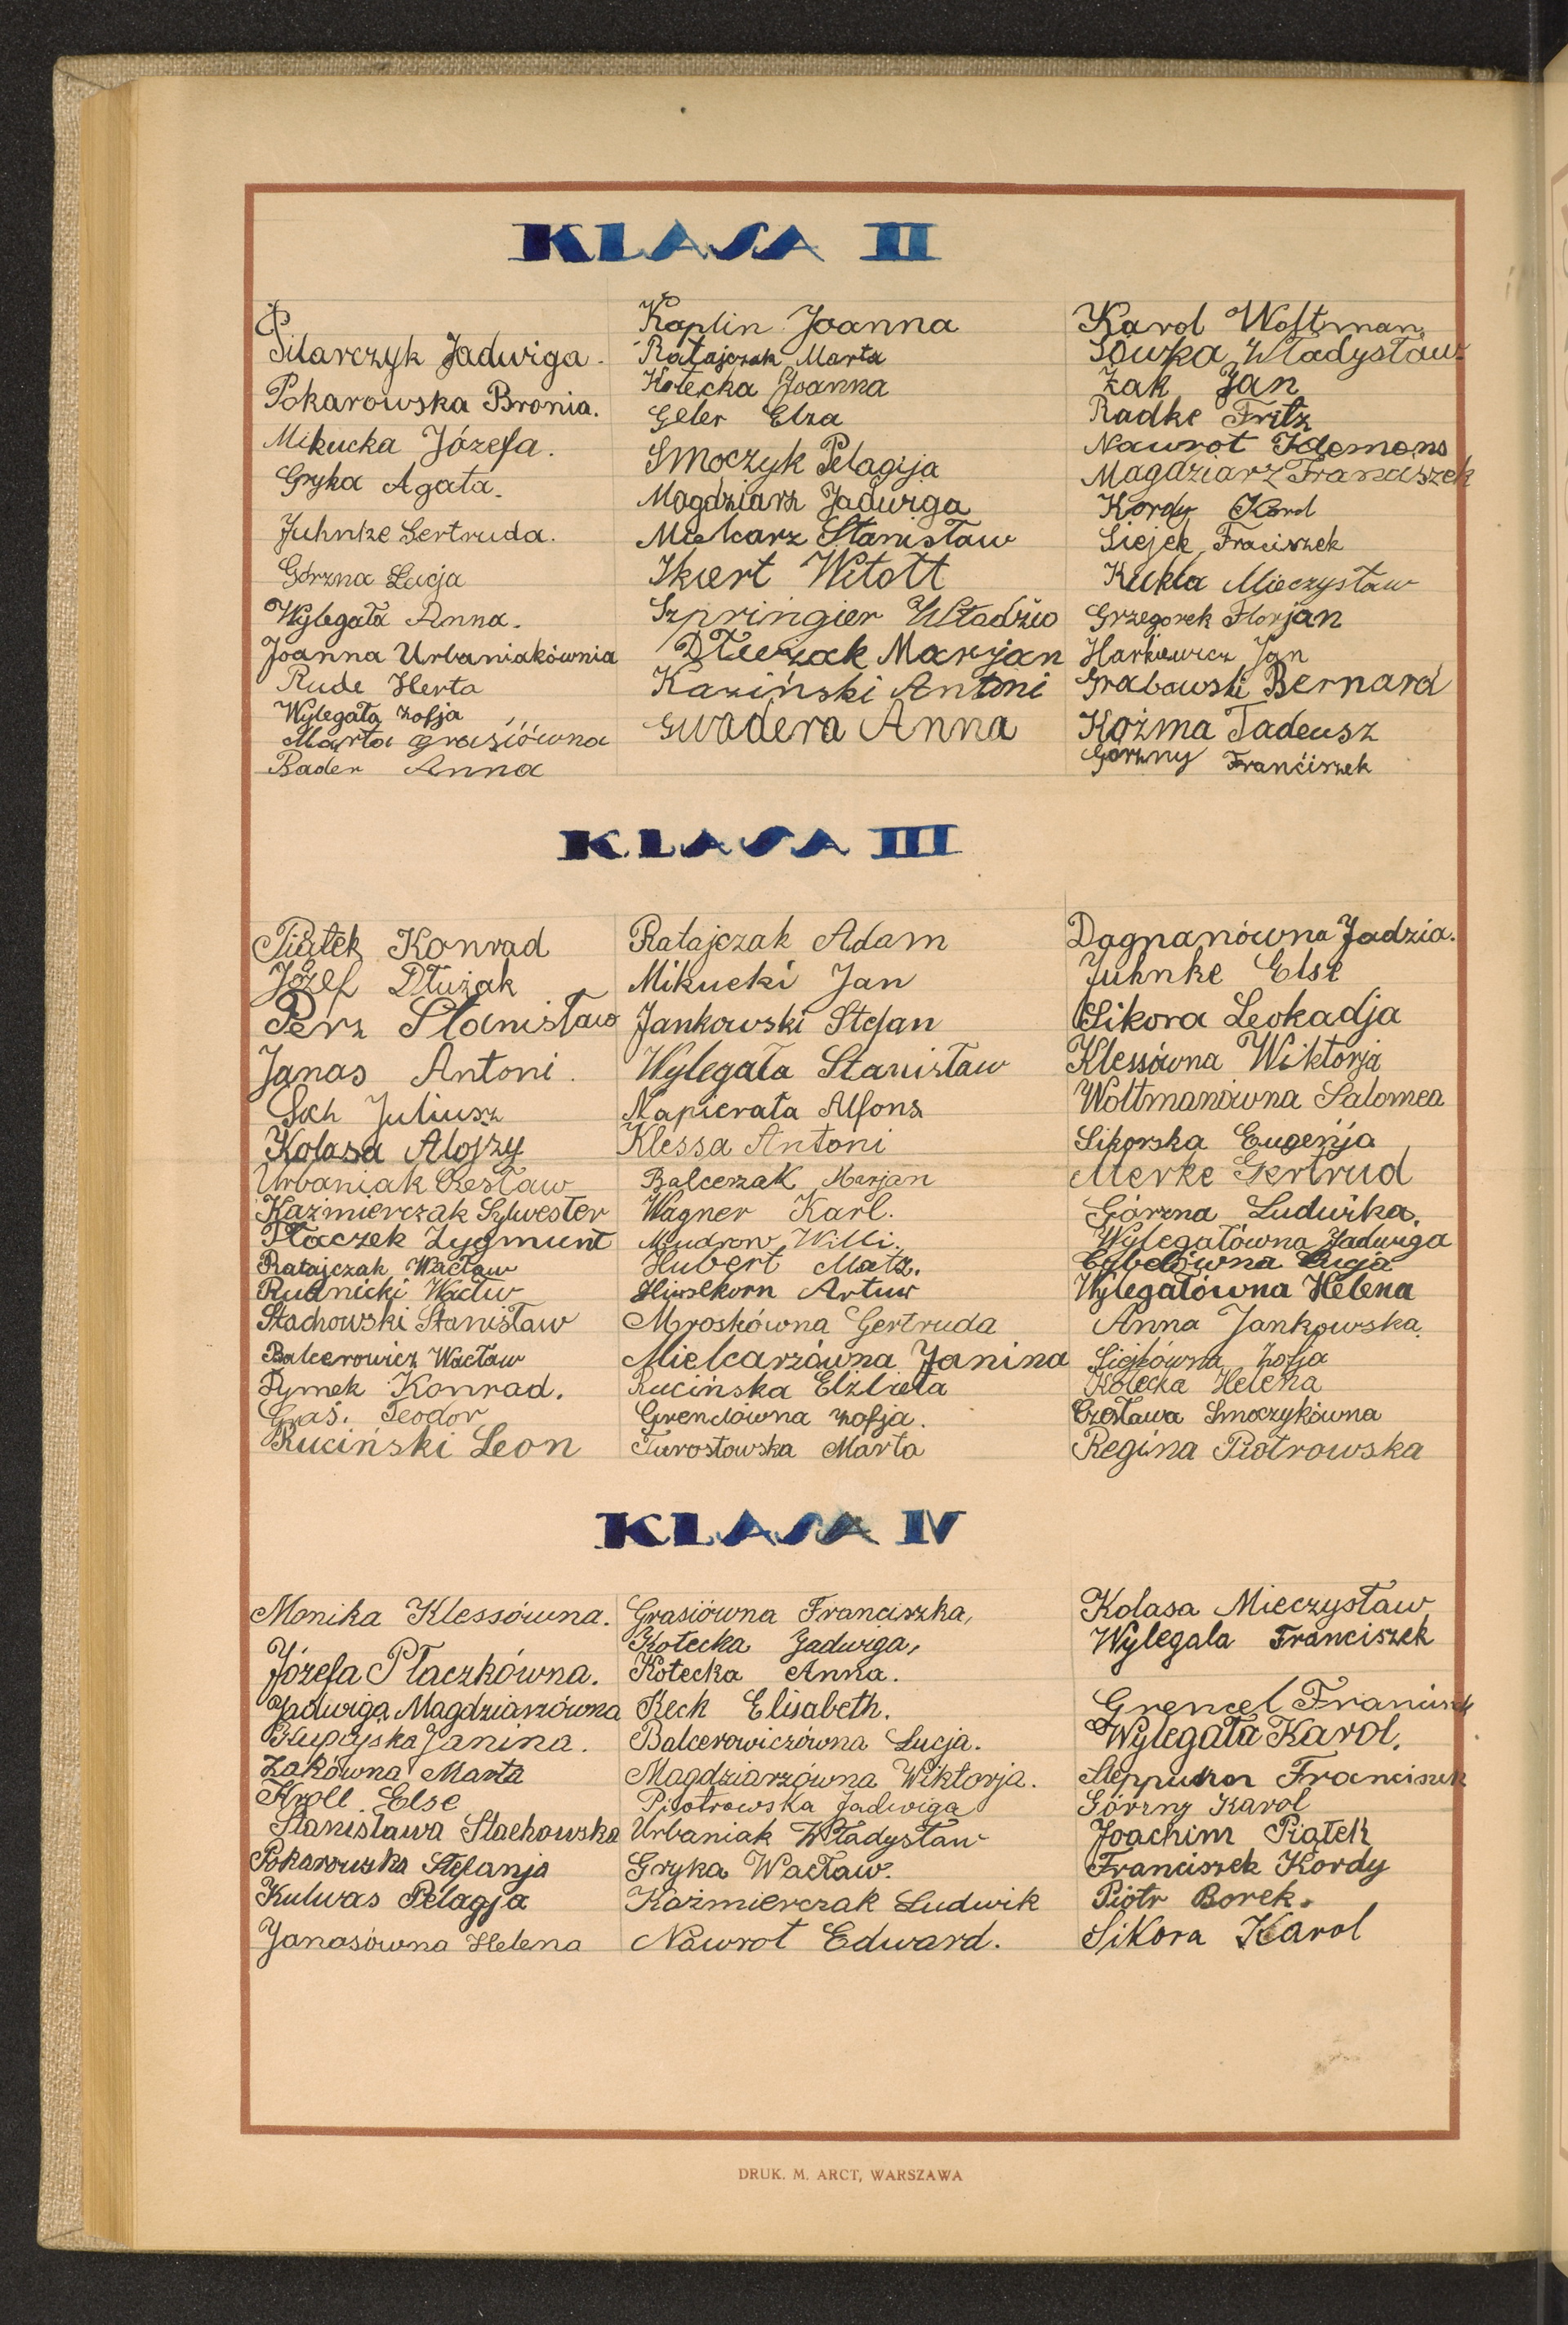 KLASA II
Pilarczyk Jadwiga.
Pokarowska Bronia.
Mikucka Józefa.
Gryka Agata.
Juhnke Gertruda.
Górzna Łucja
Wylegała Anna.
Joanna Urbaniakównia
Rude Herta
Wylegała Zofja
Marta Grasiówna
Bader Anna
Kaplin Joanna
Ratajczak Marta
Kotecka Joanna
Geler Elza
Smoczyk Pelagija
Magdziarz Jadwiga
Mielcarz Stanisław
Ikiert Witott
Szpringier Władzio
Dłużak Maryjan
Kaziński Antoni
Gwadera Anna
Karol Woltman
Sówka Władysław
Żak Jan
Radke Fritz
Nawrot Klemens
Magdziarz Franciszek
Kordy Karol
Siejek Fraciszek
Kukla Mieczysław
Grzegorek Florjan
Harkiewicz Jan
Grabowski Bernard
Koźma Tadeusz
Górzny Franciszek
KLASA III
Piątek Konrad
Józef Dłużak
Perz Stanisław
Janas Antoni.
Juliusz
Kolasa Alojzy
Urbaniak Czesław
Kaźmierczak Sylwester
Płaczek Zygmunt
Ratajczak Wacław
Rudnicki Wacłw
Stachowski Stanisław
Balcerowicz Wacław
Rymek Konrad.
Graś. Teodor
Ruciński Leon
Ratajczak Adam
Mikucki Jan
Jankowski Stefan
Wylegała Stanisław
Napierała Alfons
Klessa Antoni
Balcerzak Marjan
Wagner Karl.
Mudrow Willi.
Hubert Matz.
Hinselkorn Artur
Mroskówna Gertruda
Mielcarzówna Janina
Rucińska Elżbieta
Grendówna Zofja.
Turostowska Marta
Dagnanówna Jadzia.
Juhnke Else
Sikora Leokadja
Klessówna Wiktorja
Woltmanówna Salomea
Sikorska Eugenja
Merke Gertrud
Górzna Ludwika.
Wylegałówna Jadwiga
Cybelówna Łucja
Wylegałówna Helena
Anna Jankowska.
Siejkówna Zofja
Kotecka Helena
Czesława Smoczykówna
Regina Piotrowska
KLASA IV
Monika Klessówna.
Józefa Płaczkówna.
Jadwiga Magdziarzówna
Krupczyska Janina.
Żakówna Marta
Kroll Else
Stanisława Stachowska
Pokarowska Stefanja
Kulwas Pelagja
Janasówna Helena
Grasiówna Franciszka,
Kotecka Jadwiga,
Kotecka Anna.
Reck Elisabeth.
Balcerowiczówna Łucja.
Magdziarzówna Wiktorja.
Piotrowska Jadwiga
Urbaniak Władysław
Gryka Wacław.
Kaźmierczak Ludwik
Nawrot Edward.
Kolasa Mieczysław
Wylegala Franciszek
Grencel Francisek
Wylegała Karol.
Steppuhn Franciszek
Górzny Karol
Joachim Piątek
Franciszek Kordy
Piotr Borek.
Sikora Karol
DRUK. M. ARCT, WARSZAWA